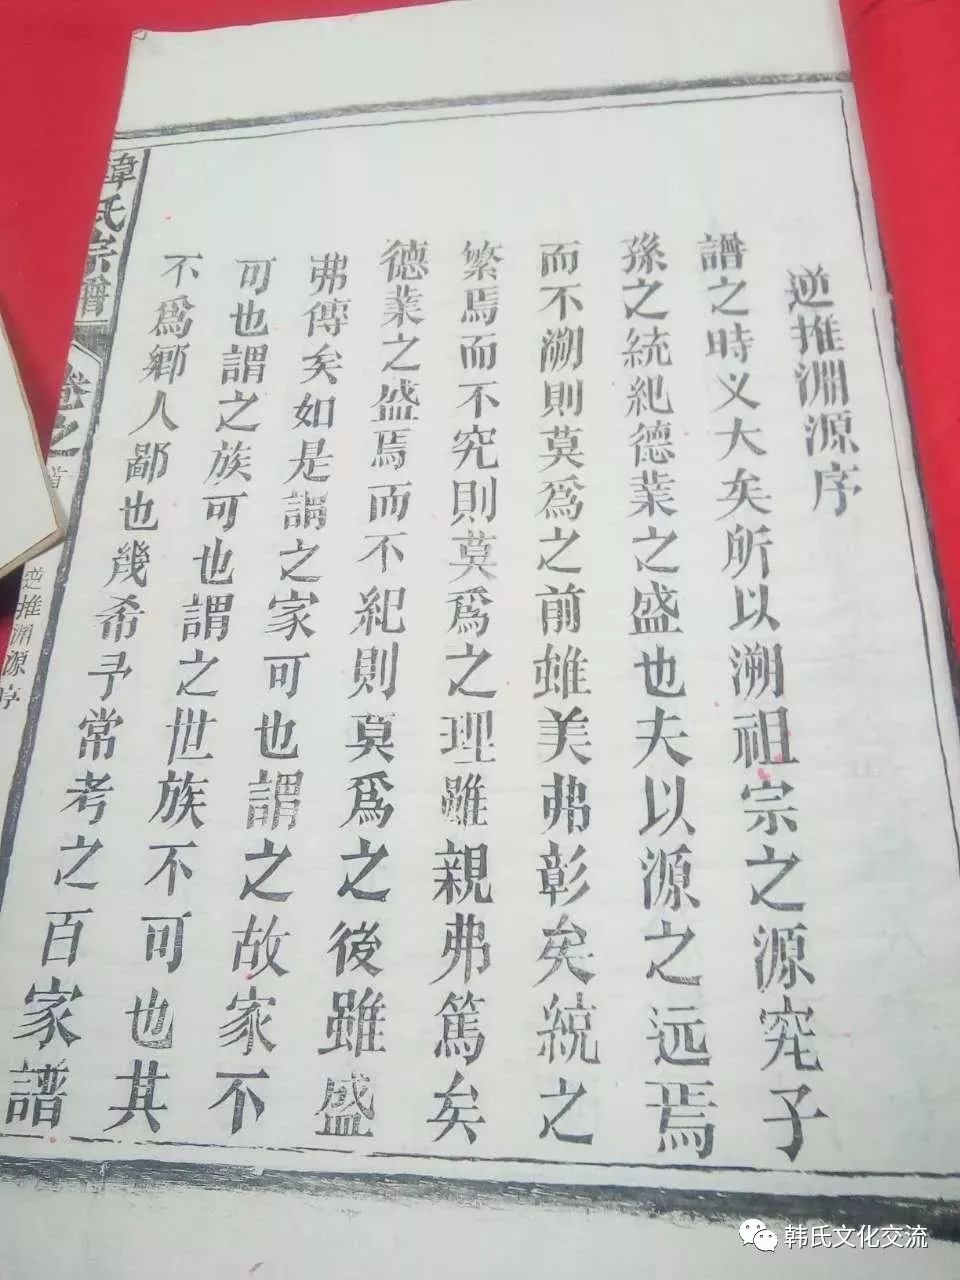 逆推淵源序
譜之時义大矣所以溯祖宗之源究子
孫之統紀德業之盛也夫以源之远焉
而不溯則莫爲之前虽美弗彰矣統之
繁焉而不究則莫爲之理雖親弗篤矣
德業之盛焉而不紀則莫爲之後雖盛
弗傳矣如是謂之家可也謂之故家不
可也謂之族可也謂之世族不可也其
不爲鄉人鄙也幾希予常考之百家譜
韓氏宗譜
卷之首
逆推淵源序
韩氏文化交流